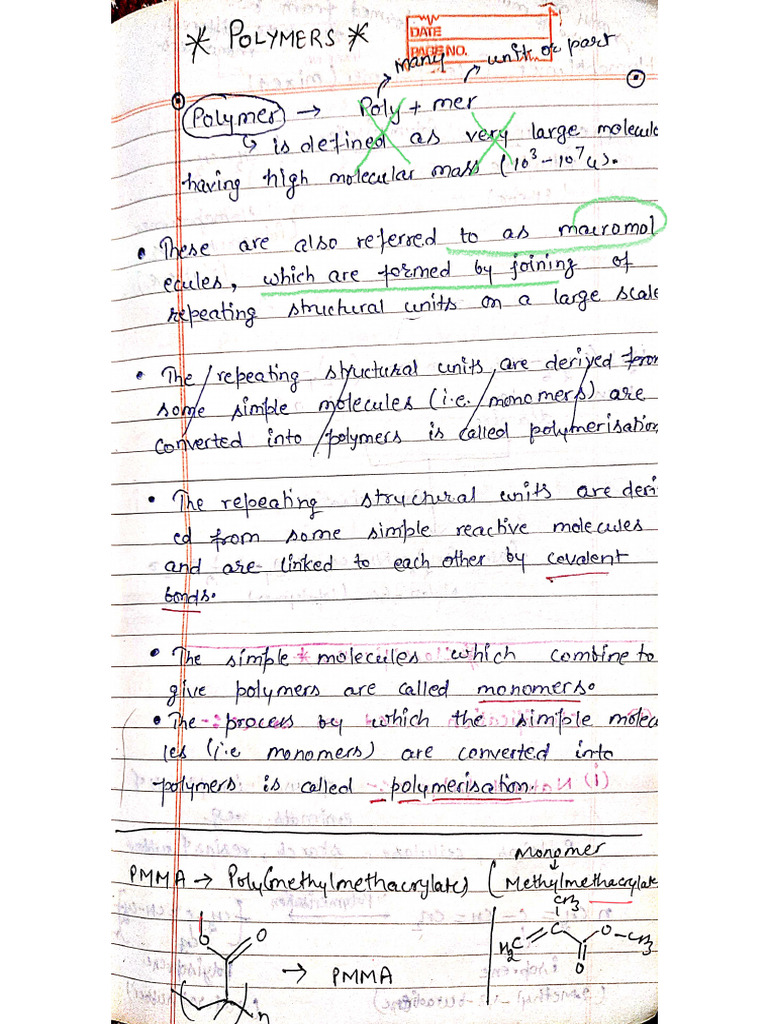 * POLYMERS *
DATE
PAGE NO.
many
unit or part
Polymer → Poly + mer
↳ is defined as very large molecule
having high molecular mass (10³ - 10⁷ u).
• These are also referred to as macromol
ecules, which are formed by joining of
repeating structural units on a large scale
• The repeating structural units, are derived from
some simple molecules (i.e. monomers) are
converted into polymers is called polymerisation
• The repeating structural units are deri
ed from some simple reactive molecules
and are linked to each other by covalent
bonds.
• The simple molecules which combine to
give polymers are called monomers.
• The process by which the simple molecu
les (i.e monomers) are converted into
polymers is called polymerisation.
Monomer
PMMA → Poly(methylmethacrylate) (Methylmethacrylate
CH3
H2C=C O-CH3
O
O O
→ PMMA
n